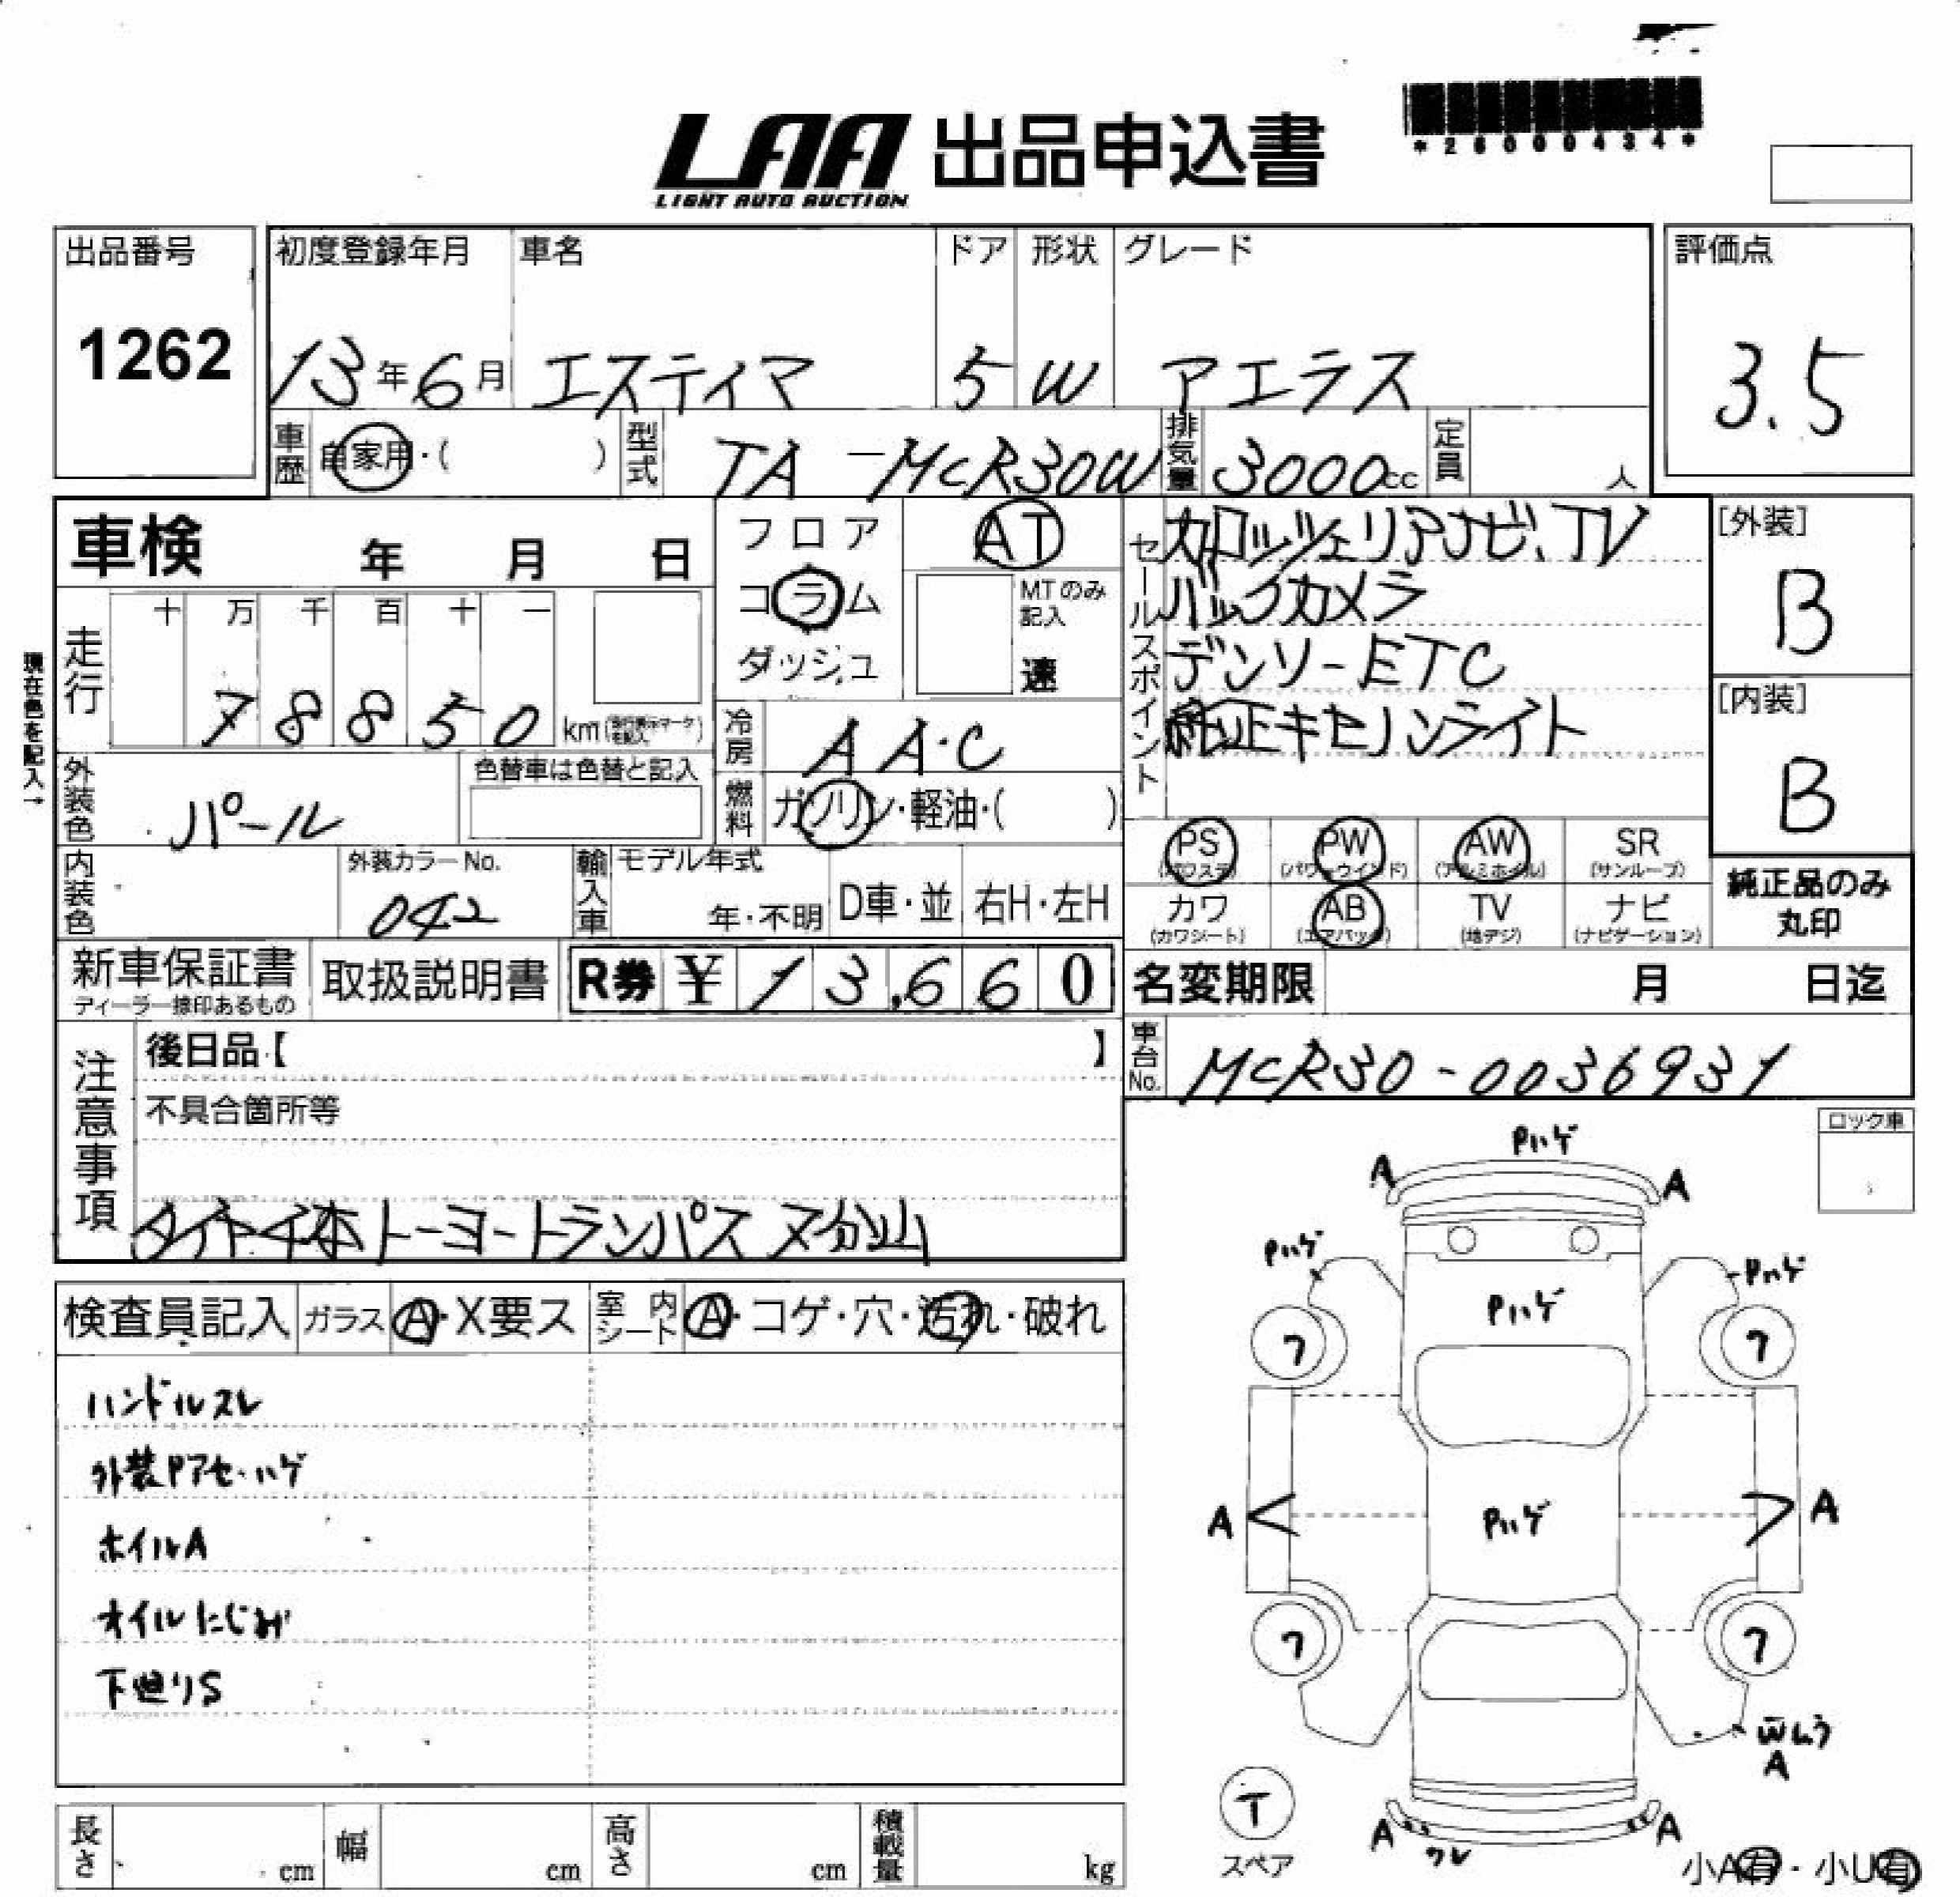 LAA 出品申込書
LIGHT AUTO AUCTION
*26000434*
出品番号
1262
初度登録年月
13年6月
車名
エスティマ
ドア
5
形状
W
グレード
アエラス
評価点
3.5
車歴
自家用・( )
型式
TA-MCR30W
排気量
3000cc
定員
人
車検 年 月 日
フロア
コラム
ダッシュ
AT
MTのみ
記入
速
セールスポイント
カロッツェリアナビ、TV
バックカメラ
デンソーETC
純正キセノンライト
[外装]
B
[内装]
B
現在色を記入→
走行
十 万 千 百 十 一
7 8 8 5 0 km
冷房
AA・C
燃料
ガソリン・軽油・( )
外装色
パール
色替車は色替と記入
内装色
外装カラーNo.
042
輸入車
モデル年式
年・不明
D車・並
右H・左H
PS
(パワステ)
PW
(パワーウインド)
AW
(アルミホイル)
SR
(サンルーフ)
カワ
(カワシート)
AB
(エアバック)
TV
(地デジ)
ナビ
(ナビゲーション)
純正品のみ
丸印
新車保証書
ディーラー捺印あるもの
取扱説明書
R券 ¥13,660
名変期限 月 日迄
車台No.
MCR30-0036931
注意事項
後日品【 】
不具合箇所等
タイヤ4本トーヨートランパス ヌ分山
ロック車
検査員記入
ガラス
A・X要ス
室内
シート
A・コゲ・穴・汚れ・破れ
ハンドルスレ
外装Pアセ・ハゲ
ホイルA
オイルにじみ
下廻りS
Pハゲ
A
A
Pハゲ
Pハゲ
Pハゲ
7
7
A
Pハゲ
A
7
7
A
T
スペア
A
A
小A有・小U有
長さ
cm
幅
cm
高さ
cm
積載量
kg